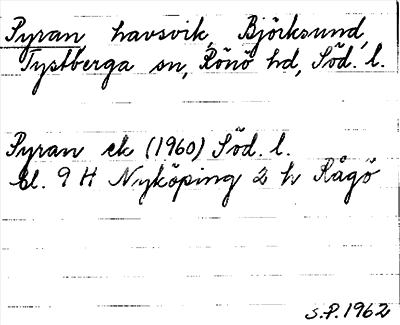 Pyran havsvik, Björksund,
Tystberga sn, Rönö hd, Söd. l.
Pyran ek (1960) Söd. l.
bl. 9 H Nyköping 2 h Rågö
S.P. 1962